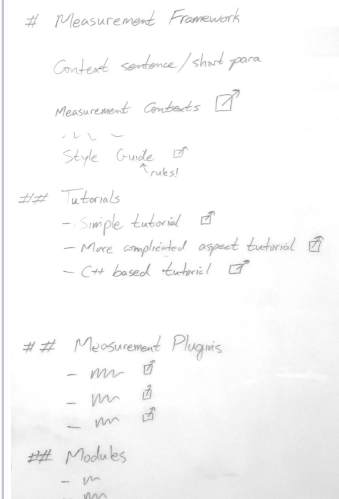 # Measurement Framework
Context sentence/short para
Measurement Contexts
Style Guide
rules!
## Tutorials
- Simple tutorial
- More complicated aspect tutorial
- C++ based tutorial
## Measurement Plugins
-
-
-
## Modules
-
-